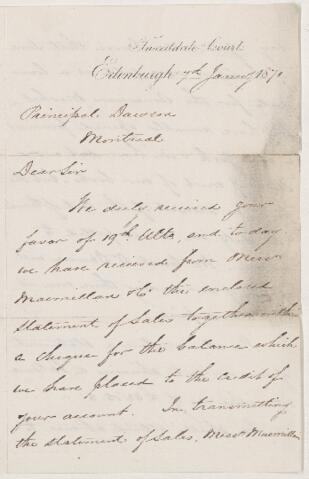 Tweeddale Court
Edinburgh 7th Jany 1871
Principal Dawson
Montreal
Dear Sir
We duly received your
favor of 19th Ulto, and to day
we have received from Messrs
Macmillan & Co the enclosed
statement of Sales together with
a cheque for the balance which
we have placed to the credit of
your account. In transmitting
the statement of Sales, Messrs Macmillan